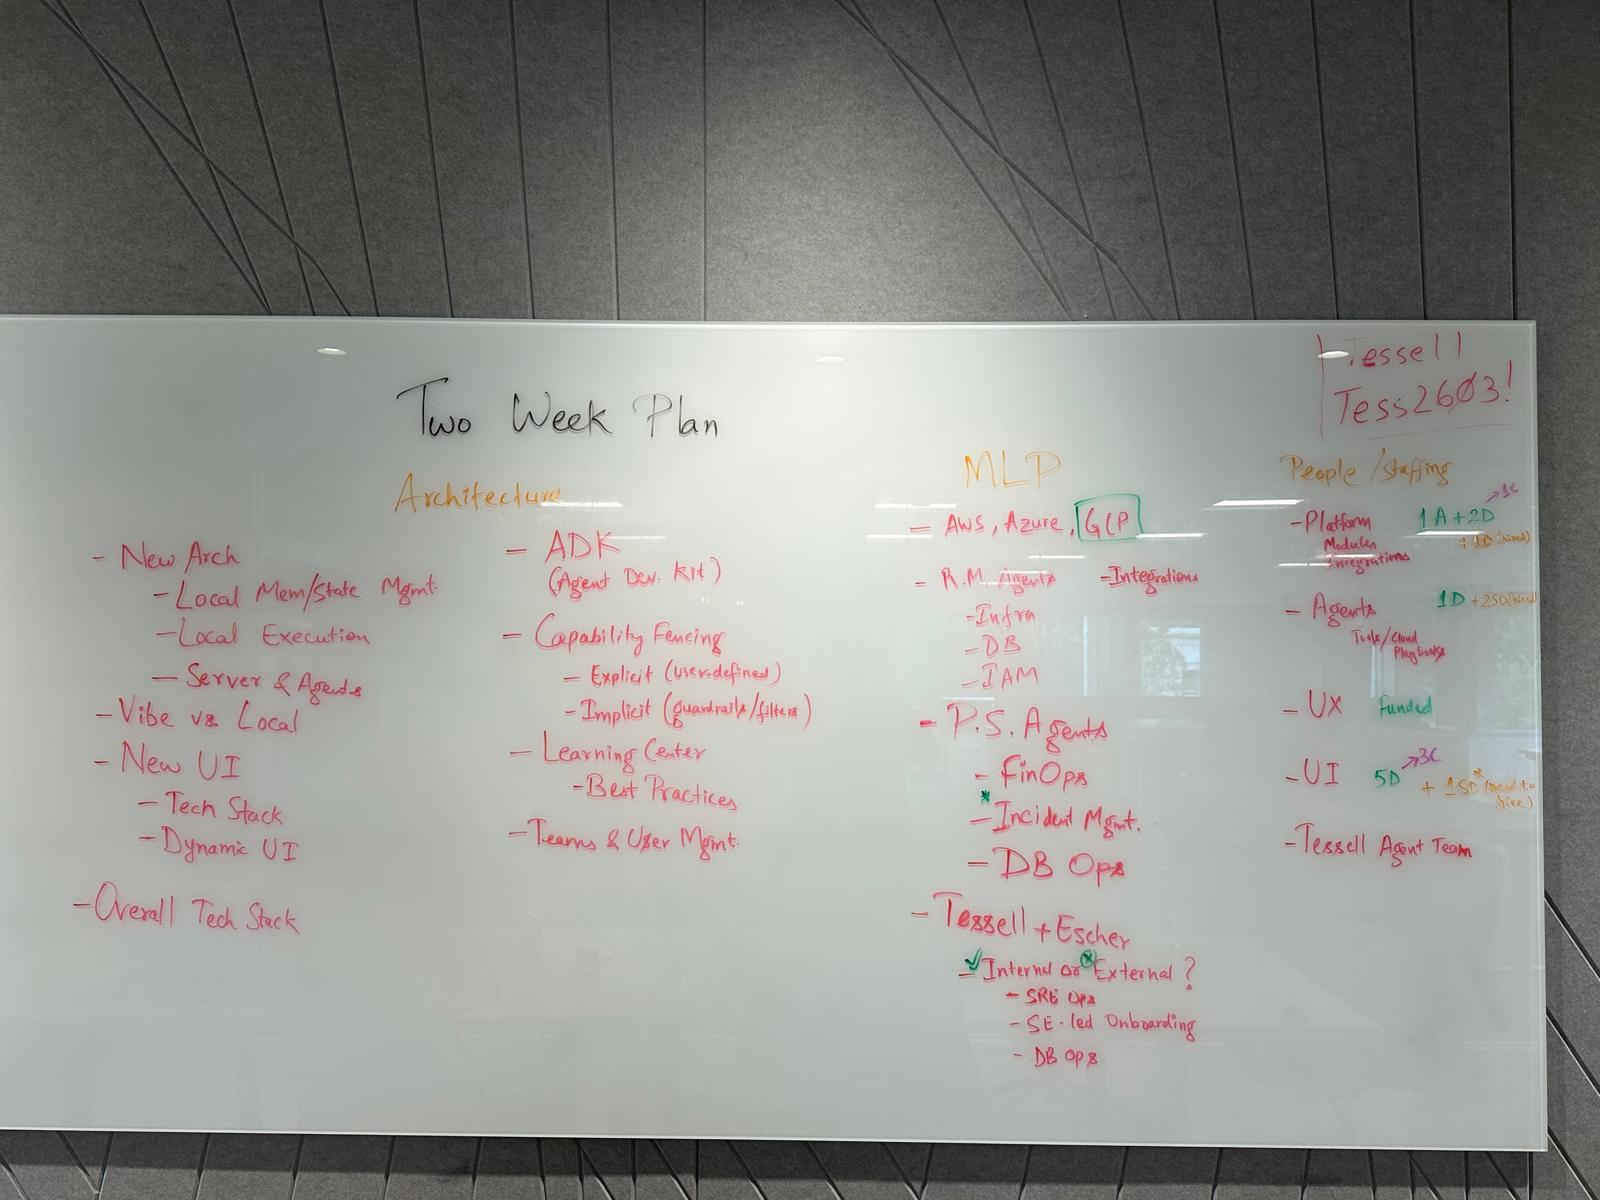 Tessell
Tess2603!
Two Week Plan
Architecture
- New Arch
- Local Mem/State Mgmt.
- Local Execution
- Server & Agents
- Vibe vs Local
- New UI
- Tech Stack
- Dynamic UI
- Overall Tech Stack
- ADK
(Agent Dev. Kit)
- Capability Fencing
- Explicit (user-defined)
- Implicit (guardrails/filters)
- Learning Center
- Best Practices
- Teams & User Mgmt.
MLP
- AWS, Azure, GCP
- R.M. Agents - Integrations
- Infra
- DB
- IAM
- P.S. Agents
- FinOps
* - Incident Mgmt.
- DB Ops
- Tessell + Escher
✓ - Internal or ⊗ External ?
- SRE Ops
- SE-led Onboarding
- DB Ops
People/staffing
- Platform 1A+2D → 1C
Modules + 1D (hired)
Integrations
- Agents 1D + 2SD (hired)
Tools/Cloud
Playbooks
- UX funded
- UI 5D → 3C + 1SD* (need to
hire)
- Tessell Agent Team